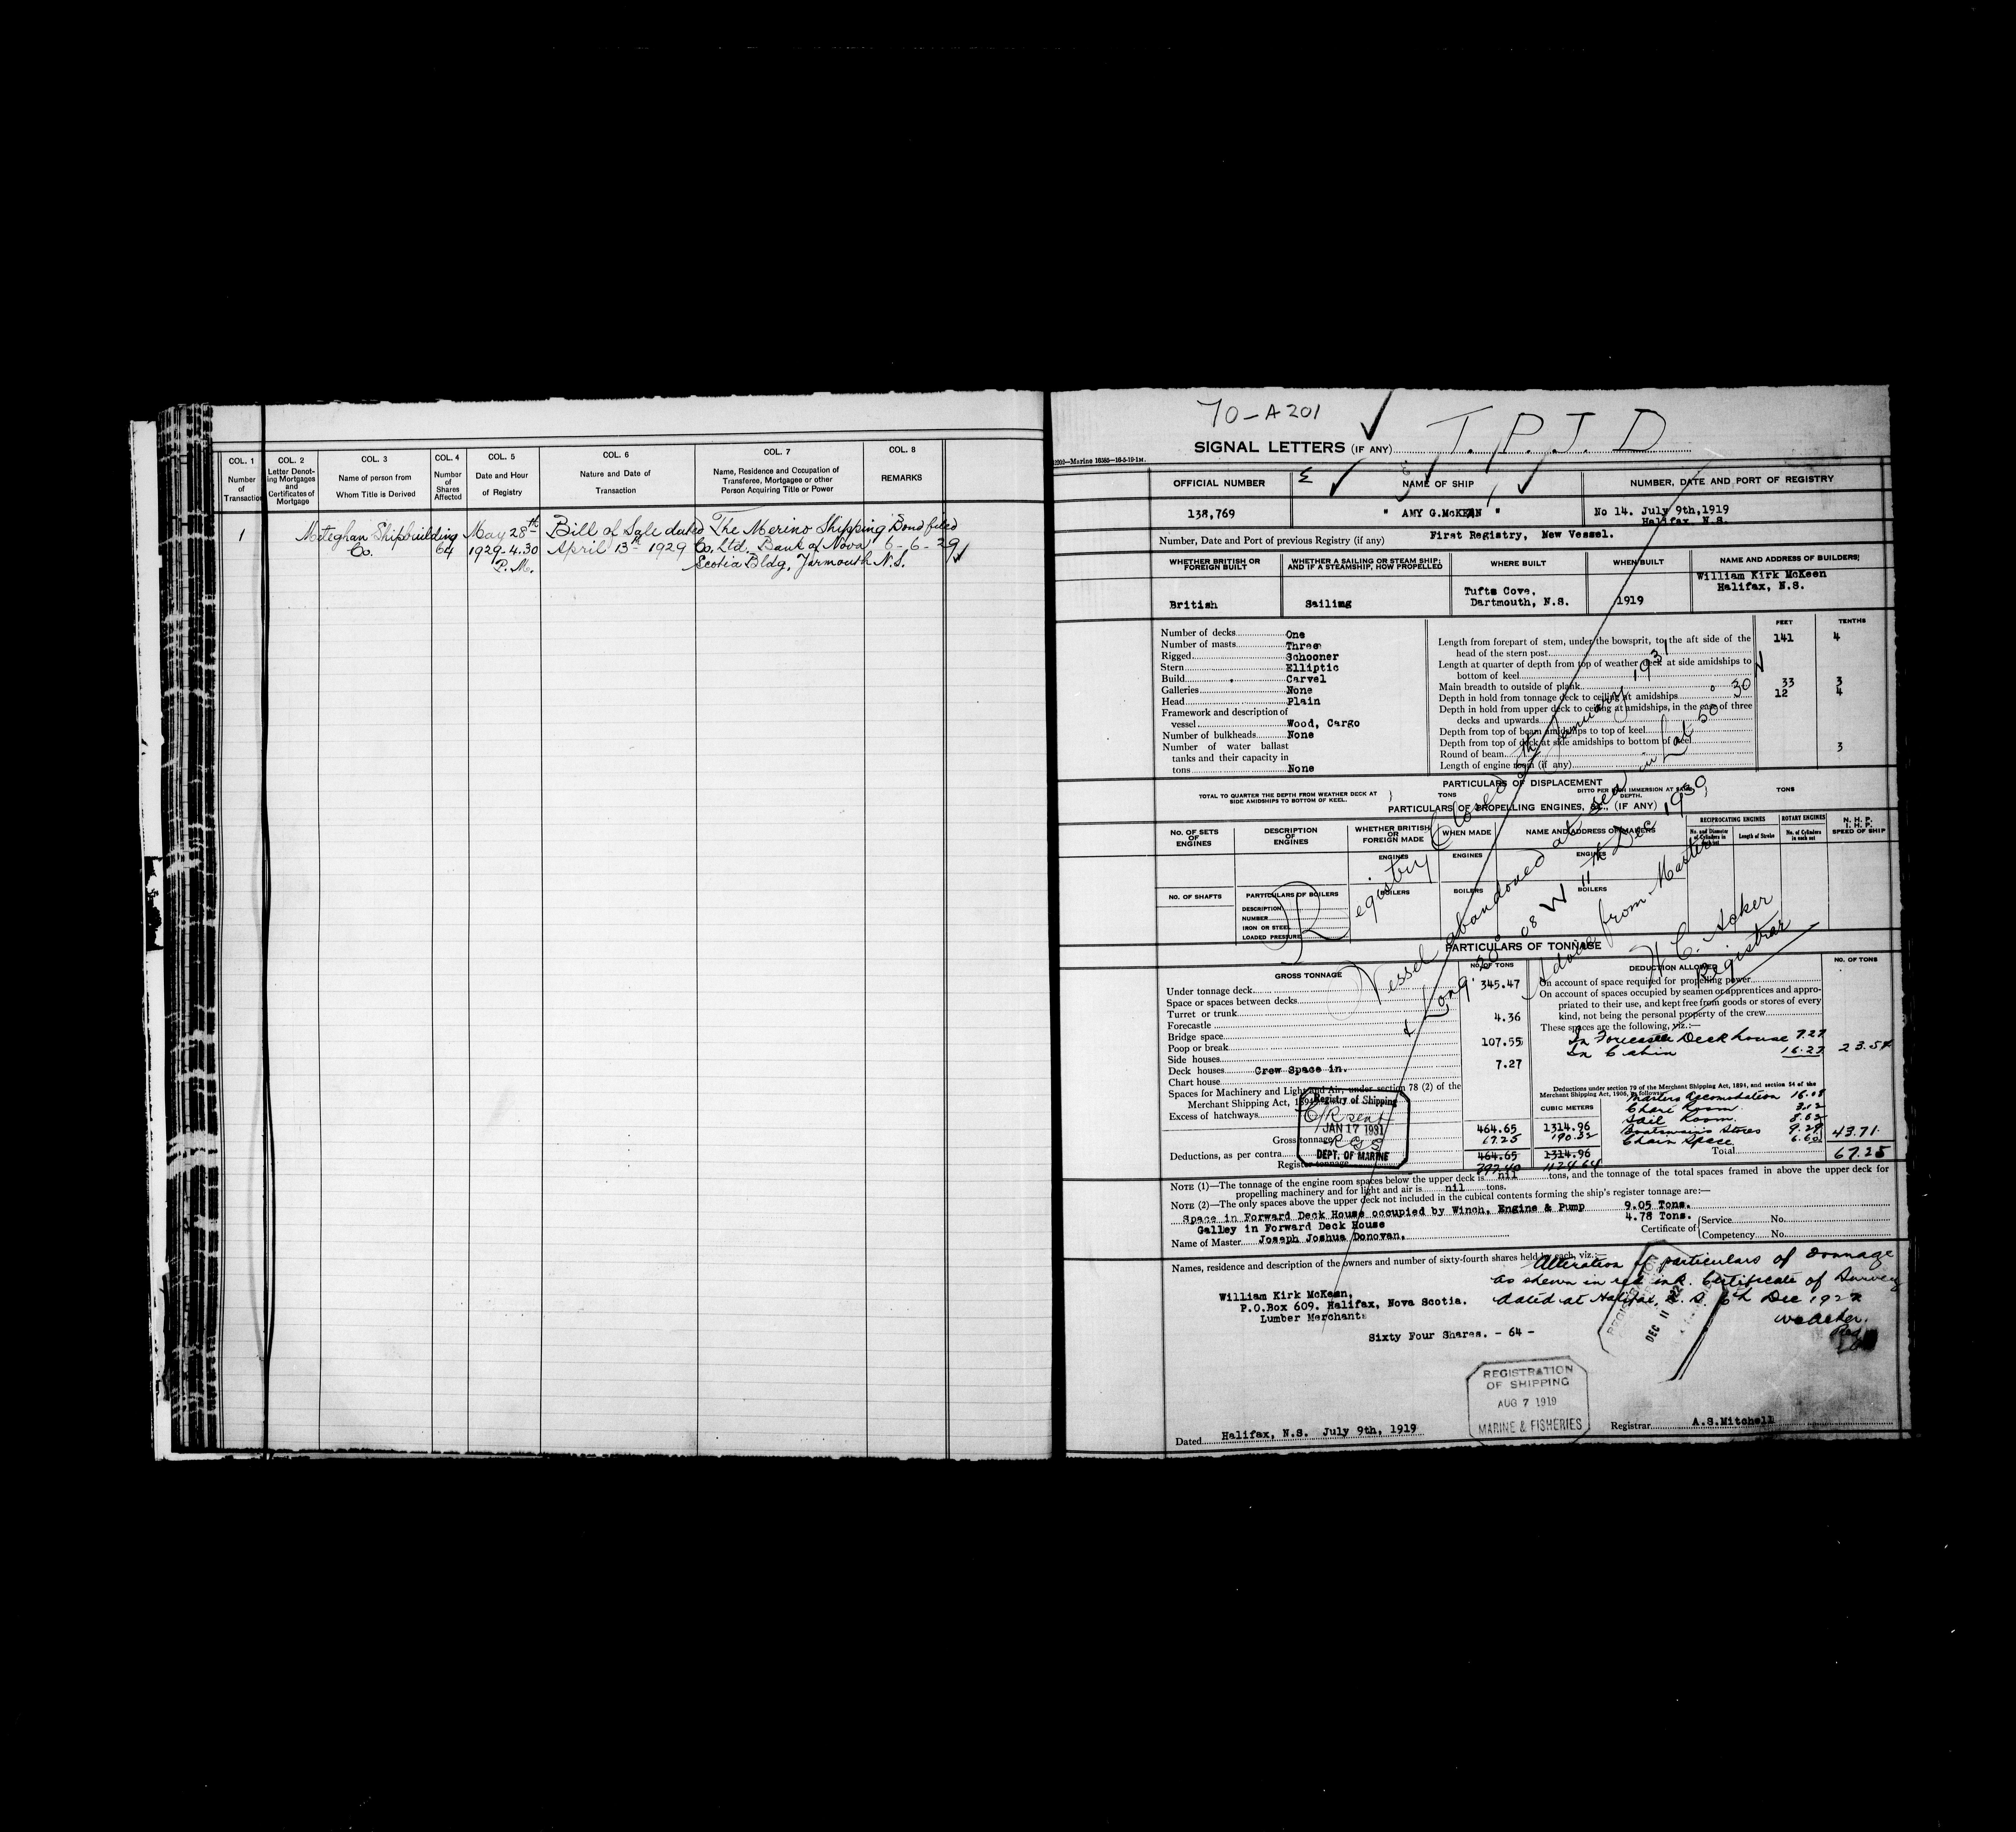 COL. 1
Number
of
Transaction
COL. 2
Letter Denot-
ing Mortgages
and
Certificates of
Mortgage
COL. 3
Name of person from
Whom Title is Derived
COL. 4
Number
of
Shares
Affected
COL. 5
Date and Hour
of Registry
COL. 6
Nature and Date of
Transaction
COL. 7
Name, Residence and Occupation of
Transferee, Mortgagee or other
Person Acquiring Title or Power
COL. 8
REMARKS
1
Meteghan Shipbuilding
Co.
64
May 28th
1929-4.30
P.M.
Bill of Sale dated
April 13th 1929
The Merino Shipping
Co. Ltd. Bank of Nova
Scotia Bldg, Yarmouth N.S.
Bond filed
6-6-29
70-A201
SIGNAL LETTERS (IF ANY) T.P.J.D
OFFICIAL NUMBER
NAME OF SHIP
NUMBER, DATE AND PORT OF REGISTRY
138,769
" AMY G.McKEAN "
No 14. July 9th,1919
Halifax, N.S.
Number, Date and Port of previous Registry (if any) First Registry, New Vessel.
WHETHER BRITISH OR
FOREIGN BUILT
WHETHER A SAILING OR STEAM SHIP;
AND IF A STEAMSHIP, HOW PROPELLED
WHERE BUILT
WHEN BUILT
NAME AND ADDRESS OF BUILDERS
British
Sailing
Tufts Cove,
Dartmouth, N.S.
1919
William Kirk McKeen
Halifax, N.S.
Number of decks One
Number of masts Three
Rigged Schooner
Stern Elliptic
Build Carvel
Galleries None
Head Plain
Framework and description of
vessel Wood, Cargo
Number of bulkheads None
Number of water ballast
tanks and their capacity in
tons None
FEET
TENTHS
Length from forepart of stem, under the bowsprit, to the aft side of the
head of the stern post 141 4
Length at quarter of depth from top of weather deck at side amidships to
bottom of keel
Main breadth to outside of plank 33 3
Depth in hold from tonnage deck to ceiling at amidships 12 4
Depth in hold from upper deck to ceiling at amidships, in the case of three
decks and upwards
Depth from top of beam amidships to top of keel
Depth from top of deck at side amidships to bottom of keel
Round of beam 3
Length of engine room (if any)
PARTICULARS OF DISPLACEMENT
TOTAL TO QUARTER THE DEPTH FROM WEATHER DECK AT
SIDE AMIDSHIPS TO BOTTOM OF KEEL.
TONS
DITTO PER INCH IMMERSION AT SAME
DEPTH.
TONS
PARTICULARS OF PROPELLING ENGINES, &C., (IF ANY)
NO. OF SETS
OF
ENGINES
DESCRIPTION
OF
ENGINES
WHETHER BRITISH
OR
FOREIGN MADE
WHEN MADE
NAME AND ADDRESS OF MAKERS
RECIPROCATING ENGINES
No. and Diameter
of Cylinders in
each set
Length of Stroke
ROTARY ENGINES
No. of Cylinders
in each set
N. H. P.
I. H. P.
SPEED OF SHIP
ENGINES
ENGINES
ENGINES
NO. OF SHAFTS
PARTICULARS OF BOILERS
BOILERS
BOILERS
BOILERS
DESCRIPTION
NUMBER
IRON OR STEEL
LOADED PRESSURE
Registry Closed January 1931
Vessel abandoned at sea in Lat 50° 30
& Long. 08 W 11th Dec 1930
Advice from Master
H C. Acker
Registrar
PARTICULARS OF TONNAGE
GROSS TONNAGE
NO. OF TONS
Under tonnage deck 345.47
Space or spaces between decks
Turret or trunk
Forecastle 4.36
Bridge space
Poop or break 107.55
Side houses
Deck houses Crew Space in. 7.27
Chart house
Spaces for Machinery and Light and Air, under section 78 (2) of the
Merchant Shipping Act, 1894
Excess of hatchways
Gross tonnage 464.65 1314.96
Deductions, as per contra 67.25 190.32
Register tonnage 464.65 1314.96
397.40 1124.64
CUBIC METERS
Registry of Shipping
JAN 17 1931
DEPT. OF MARINE
DEDUCTION ALLOWED
NO. OF TONS
On account of space required for propelling power
On account of spaces occupied by seamen or apprentices and appro-
priated to their use, and kept free from goods or stores of every
kind, not being the personal property of the crew
These spaces are the following, viz.:—
In Deck house 7.27
In Cabin 16.27 23.54
Deductions under section 79 of the Merchant Shipping Act, 1894, and section 54 of the
Merchant Shipping Act, 1906, as follows:
Masters accomodation 16.08
Chart Room 3.12
Sail Room 8.62
Boatswain's Stores 9.29
Chain Space 6.60 43.71
Total 67.25
NOTE (1)—The tonnage of the engine room spaces below the upper deck is nil tons, and the tonnage of the total spaces framed in above the upper deck for
propelling machinery and for light and air is nil tons.
NOTE (2)—The only spaces above the upper deck not included in the cubical contents forming the ship's register tonnage are:—
Space in Forward Deck House occupied by Winch, Engine & Pump 9.05 Tons.
Galley in Forward Deck House 4.78 Tons.
Name of Master Joseph Joshua Donovan.
Certificate of
Service No.
Competency No.
Names, residence and description of the owners and number of sixty-fourth shares held by each, viz.:—
Alteration of particulars of tonnage
as shewn in red ink. Certificate of Survey
dated at Halifax, N.S. 6th Dec 1922
William Kirk McKean,
P.O.Box 609. Halifax, Nova Scotia.
Lumber Merchant
Sixty Four Shares. - 64 -
DEC 11 1922
REGISTRATION
OF SHIPPING
AUG 7 1919
MARINE & FISHERIES
Dated Halifax, N.S. July 9th, 1919
Registrar A.S.Mitchell